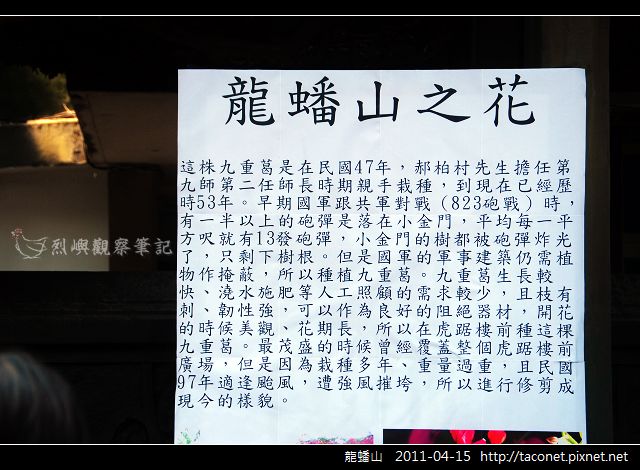 龍蟠山之花
這株九重葛是在民國47年，郝柏村先生擔任第
九師第二任師長時期親手栽種，到現在已經歷
時53年。早期國軍跟共軍對戰（823砲戰）時，
有一半以上的砲彈是落在小金門，平均每一平
方呎就有13發砲彈，小金門的樹都被砲彈炸光
了，只剩下樹根。但是國軍的軍事建築仍需植
物作掩蔽，所以種植九重葛。九重葛生長較
快、澆水施肥等人工照顧的需求較少，且枝有
刺、韌性強，可以作為良好的阻絕器材，開花
的時候美觀、花期長，所以在虎踞樓前種這棵
九重葛。最茂盛的時候曾經覆蓋整個虎踞樓前
廣場，但是因為栽種多年、重量過重，且民國
97年適逢颱風，遭強風摧垮，所以進行修剪成
現今的樣貌。
烈嶼觀察筆記
龍蟠山 2011-04-15 http://taconet.pixnet.net